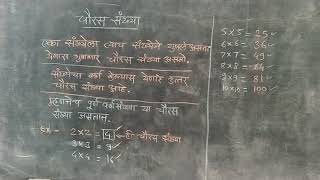 चौरस संख्या
एका संख्येला त्याच संख्येने गुणले असता
येणारा गुणाकार चौरस संख्या असते.
संख्येचा वर्ग केल्यास येणारे उत्तर
चौरस संख्या आहे.
म्हणजेच पूर्ण वर्गसंख्या या चौरस
संख्या असतात.
2×2 = 4 ही चौरस संख्या
3×3 = 9
4×4 = 16
5×5 = 25
6×6 = 36
7×7 = 49
8×8 = 64
9×9 = 81
10×10 = 100